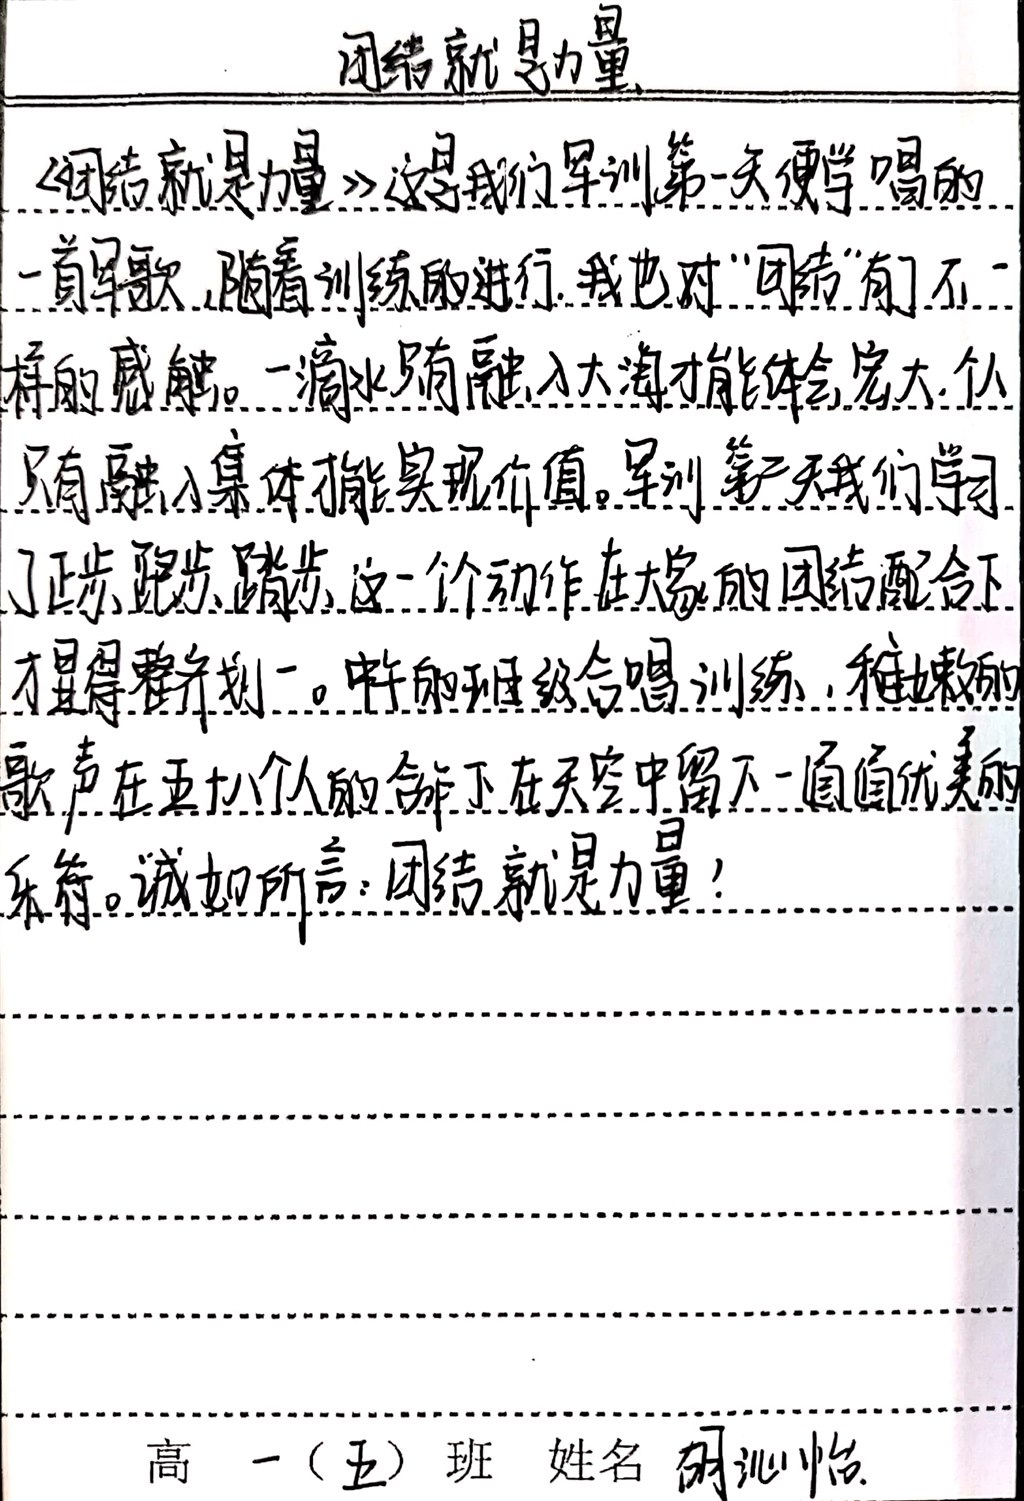 团结就是力量
《团结就是力量》这是我们军训第一天便学唱的
一首军歌,随着训练的进行,我也对“团结”有了不一
样的感触。一滴水只有融入大海才能体会宏大,个人
只有融入集体才能实现价值。军训第二天我们学习
了正步、跑步、踏步,这一个个动作在大家的团结配合下
才显得整齐划一。中午的班级合唱训练,稚嫩的
歌声在五十八个人的合作下在天空中留下一道道优美的
乐符。诚如所言:团结就是力量!
高一(五)班 姓名 胡沁怡